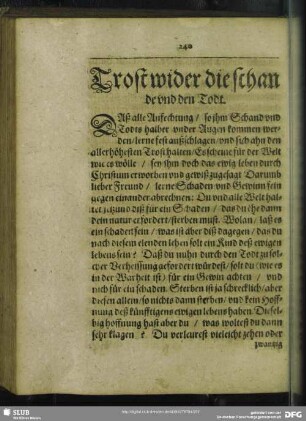 140
Trost wider die schan
de vnd den Todt.
DAß alle Anfechtung / so jhm Schand vnd
Todts halber vnder Augen kommen wer-
den / lerne fest außschlagen / vnd sich ahn den
allerhöhesten Trost halten / Es scheine für der Welt
wie es wölle / sey jhm doch das ewig leben durch
Christum erworben vnd gewiß zugesagt Darumb
lieber Freund / lerne Schaden vnd Gewinn fein
gegen einander abrechnen: Du vnd alle Welt hal-
tet jetzund diß für ein Schaden / das du jhe durch
dein natur erfordert / sterben must. Wolan / laß es
ein schaden sein / was ist aber diß dagegen / das du
nach diesem elenden leben solt ein Kind deß ewigen
lebens sein? Daß du nuhn durch den Todt zu sol-
cher Verheissung gefordert würdest / solt du (wie es
in der Warheit ist) für ein Gewin achten / vnd
nich für ein schaden. Sterben ist ja schrecklich / aber
diesen allein / so nichts dann sterben / vnd kein Hoff-
nung deß künfftigen ewigen lebens haben. Diesel-
big hoffnung hast aber du / was woltest du dann
sehr klagen? Du verleurest vieleicht zehen oder
zwantzig
SLUB
Wir führen Wissen.
DFG